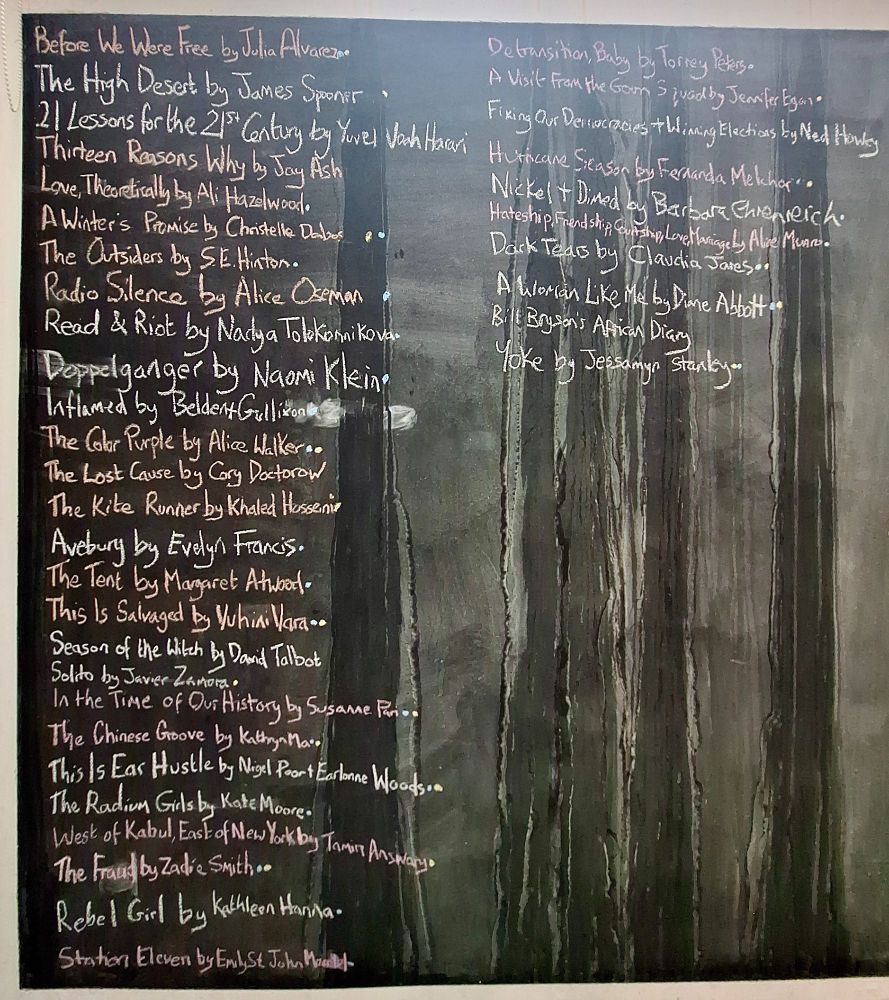 Before We Were Free by Julia Alvarez
The High Desert by James Spooner
21 Lessons for the 21st Century by Yuvel Noah Harari
Thirteen Reasons Why by Jay Ash
Love, Theoretically by Ali Hazelwood
A Winter's Promise by Christelle Dabos
The Outsiders by S.E. Hinton
Radio Silence by Alice Oseman
Read & Riot by Nadya Tolokonnikova
Doppelganger by Naomi Klein
Inflamed by Belden+Gullixon
The Color Purple by Alice Walker
The Lost Cause by Cory Doctorow
The Kite Runner by Khaled Hosseini
Avebury by Evelyn Francis
The Tent by Margaret Atwood
This Is Salvaged by Vuhini Vara
Season of the Witch by David Talbot
Solito by Javier Zamora
In the Time of Our History by Susanne Pari
The Chinese Groove by Kathryn Ma
This Is Ear Hustle by Nigel Poor+Earlonne Woods
The Radium Girls by Kate Moore
West of Kabul, East of New York by Tamin Answary
The Fraud by Zadie Smith
Rebel Girl by Kathleen Hanna
Station Eleven by Emily St John Mandel
Detransition, Baby by Torrey Peters
A Visit From the Goon Squad by Jennifer Egan
Fixing Our Democracies + Winning Elections by Ned Howey
Hurricane Season by Fernanda Melchor
Nickel + Dimed by Barbara Ehrenreich
Hateship, Friendship, Courtship, Love, Marriage by Alice Munro
Dark Tears by Claudia Jones
A Woman Like Me by Diane Abbott
Bill Bryson's African Diary
Yoke by Jessamyn Stanley